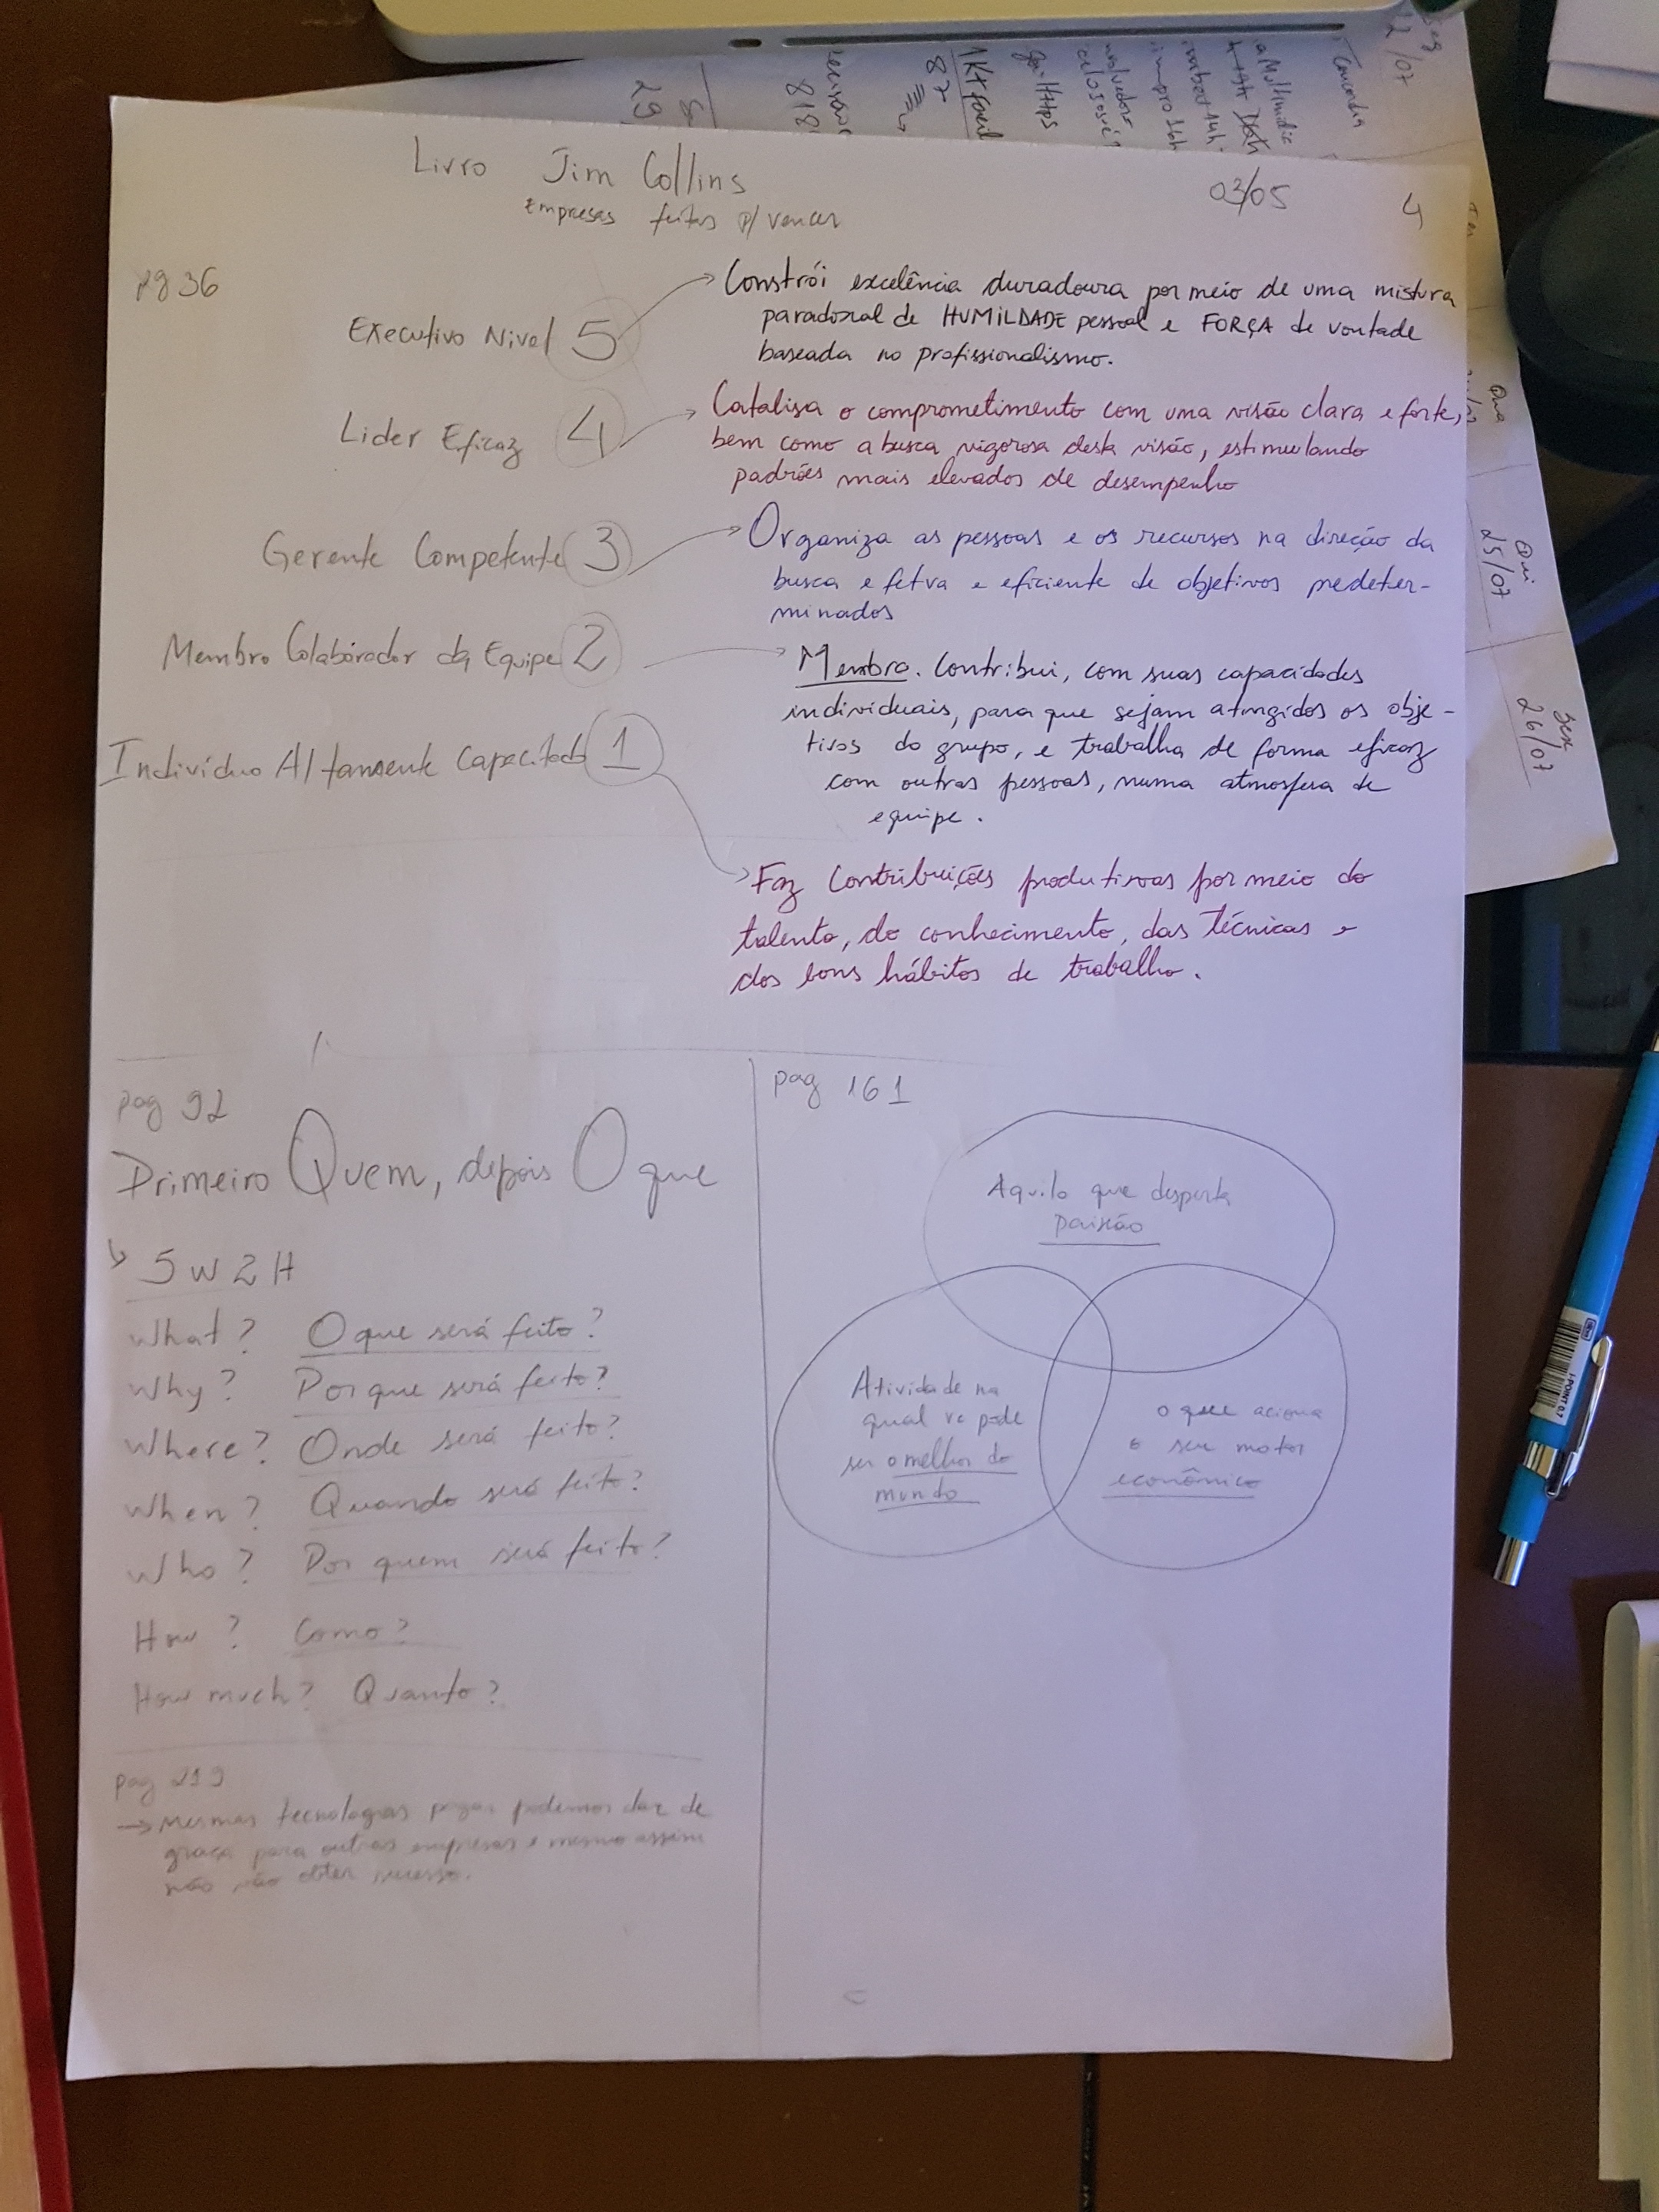 Livro Jim Collins
Empresas feitas p/ vencer
03/05
4
pg 36
Executivo Nivel 5
Constrói excelência duradoura por meio de uma mistura
paradoxal de HUMILDADE pessoal e FORÇA de vontade
baseada no profissionalismo.
Lider Eficaz 4
Catalisa o comprometimento com uma visão clara e forte,
bem como a busca vigorosa desta visão, estimulando
padrões mais elevados de desempenho
Gerente Competente 3
Organiza as pessoas e os recursos na direção da
busca efetva e eficiente de objetivos predeter-
minados
Membro Colaborador da Equipe 2
Membro. Contribui, com suas capacidades
individuais, para que sejam atingidos os obje-
tivos do grupo, e trabalha de forma eficaz
com outras pessoas, numa atmosfera de
equipe.
Indivíduo Altamente Capacitado 1
Faz contribuições produtivas por meio do
talento, do conhecimento, das técnicas e
dos bons hábitos de trabalho.
pag 92
Primeiro Quem, depois O que
5W2H
What? O que será feito?
Why? Por que será feito?
Where? Onde será feito?
When? Quando será feito?
Who? Por quem será feito?
How? Como?
How much? Quanto?
pag 219
→ Mesmas tecnologias podemos dar de
graça para outras empresas e mesmo assim
não vão obter sucesso.
pag 161
Aquilo que desperta
paixão
Atividade na
qual vc pode
ser o melhor do
mundo
o que aciona
o seu motor
econômico
29
818
87
1KT facil
22/07
Qua
Qui
25/07
Sex
26/07
i-POINT 0.7